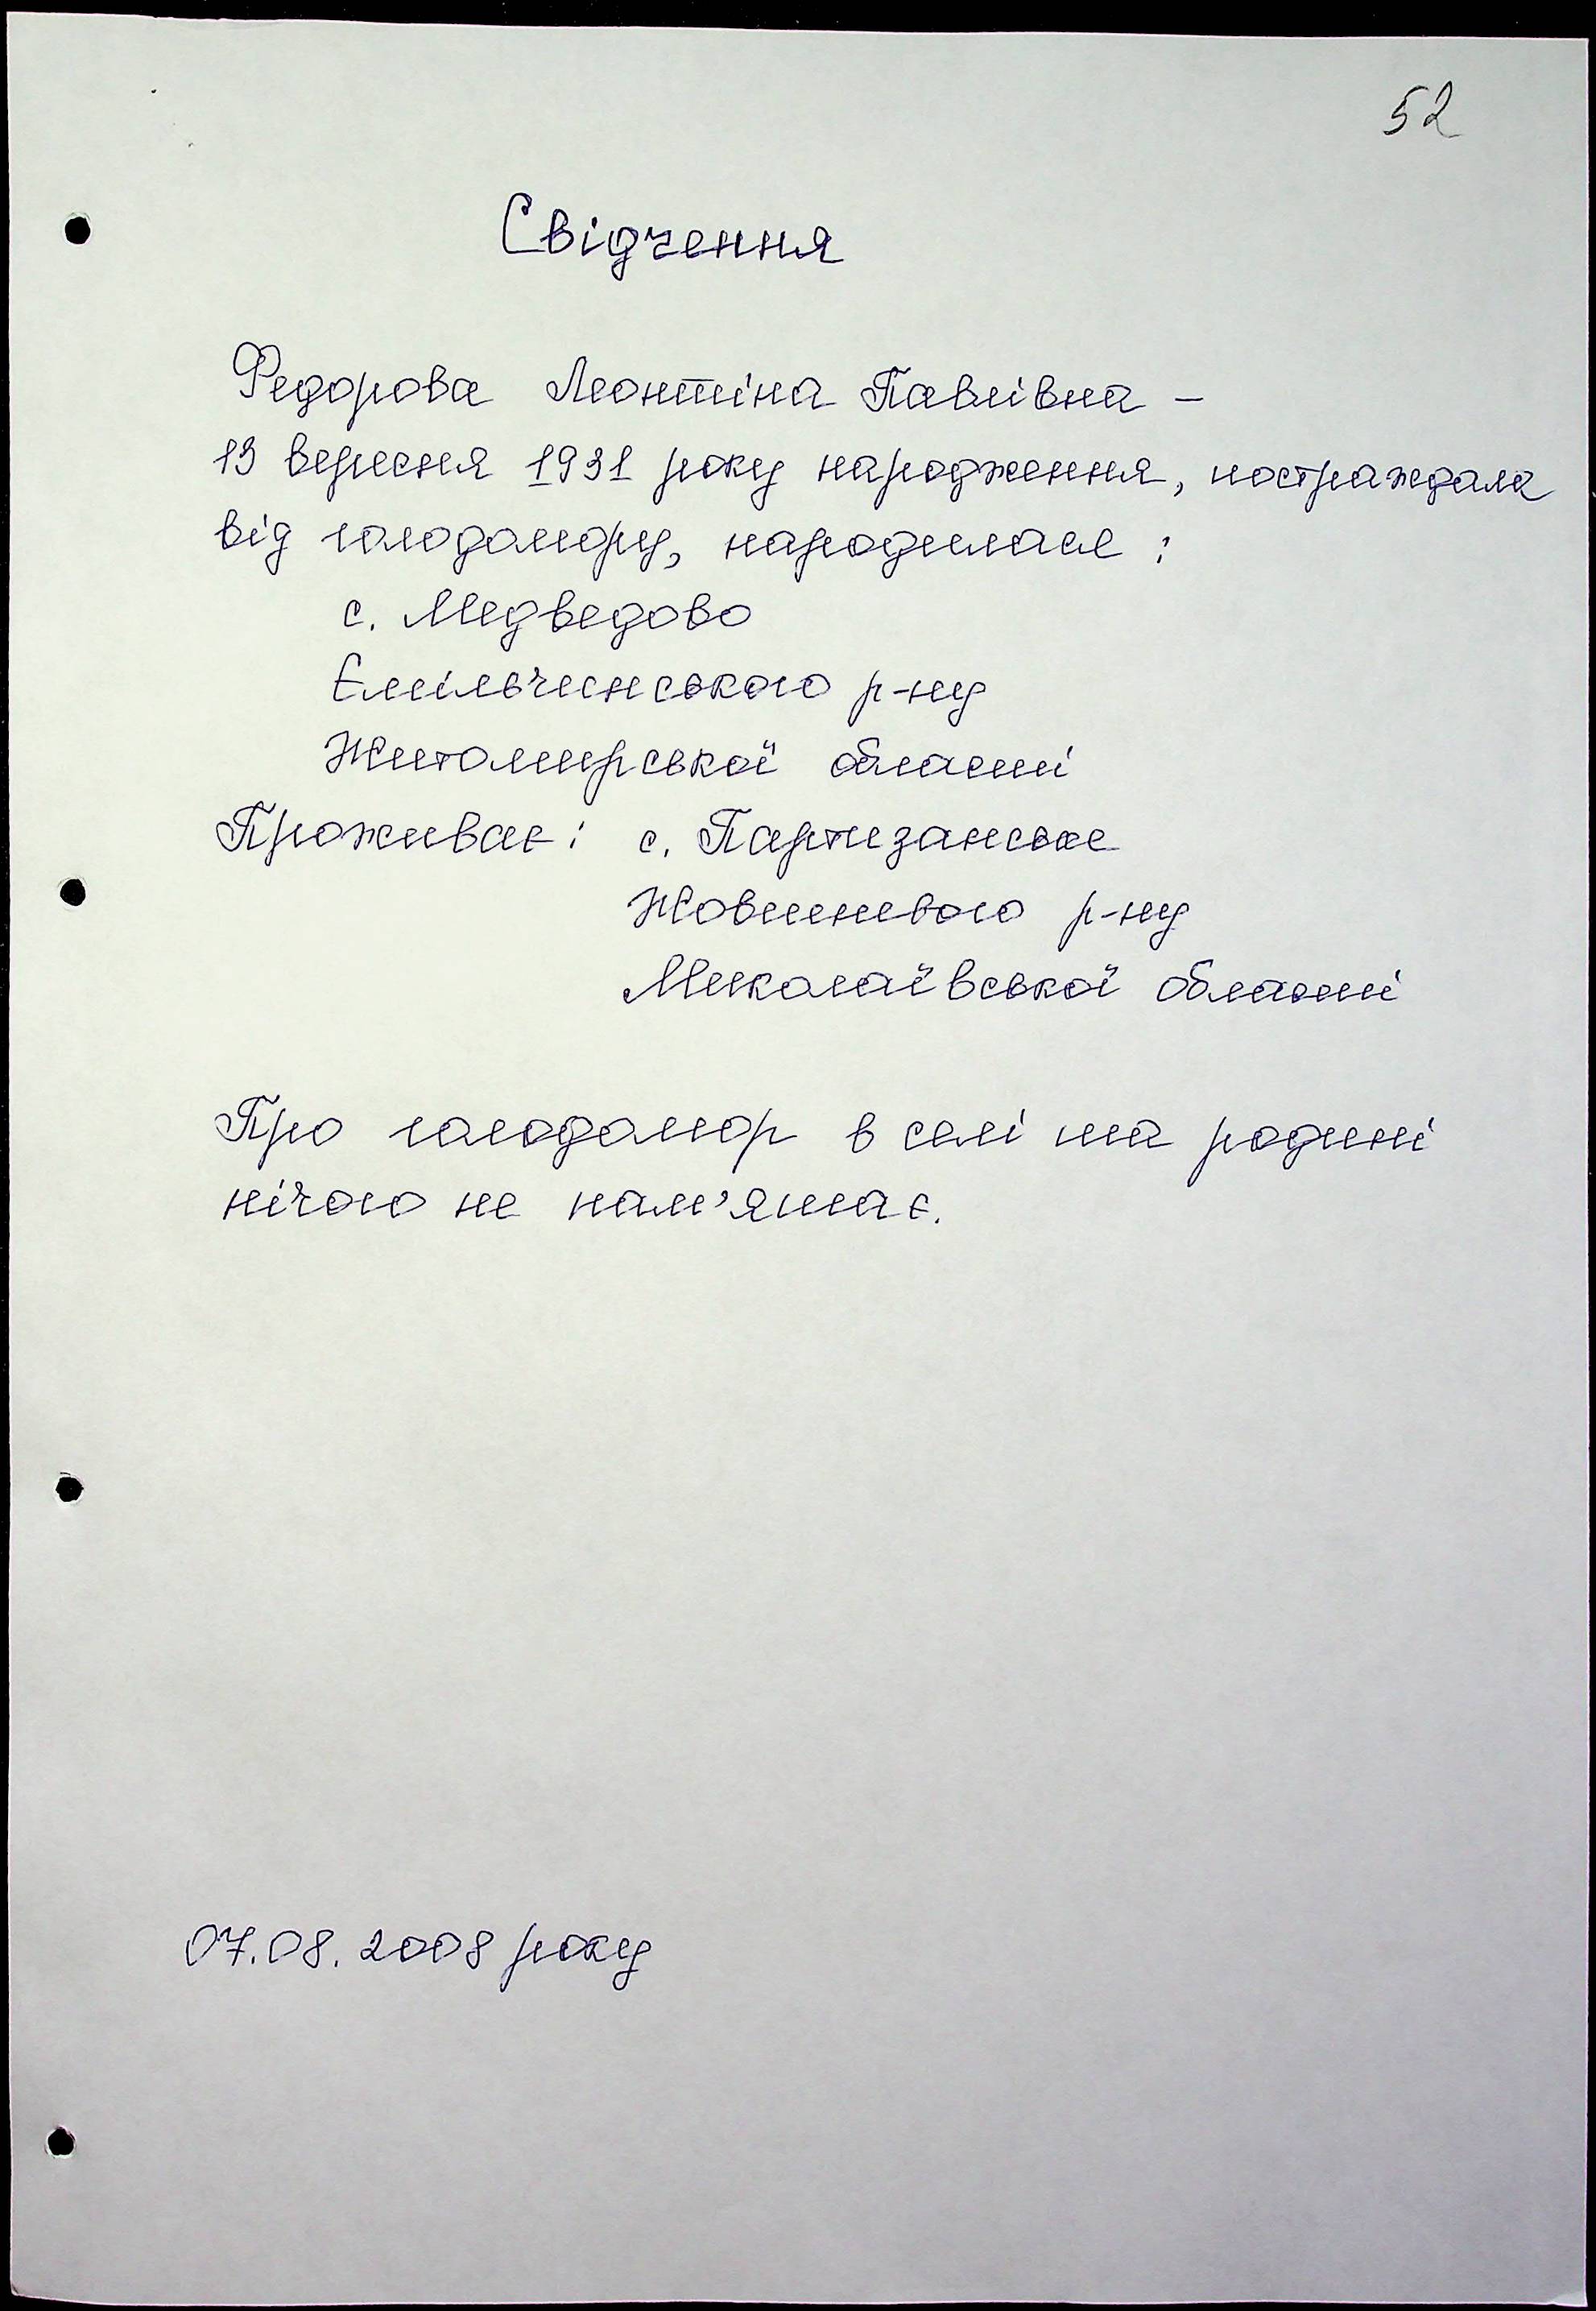 52
Свідчення
Федорова Леонтіна Павлівна –
13 вересня 1931 року народження, постраждала
від голодомору, народилася :
с. Медведово
Ємільчинського р-ну
Житомирської області
Проживає : с. Партизанське
Жовтневого р-ну
Миколаївської області
Про голодомор в селі та родині
нічого не пам'ятає.
07.08.2008 року